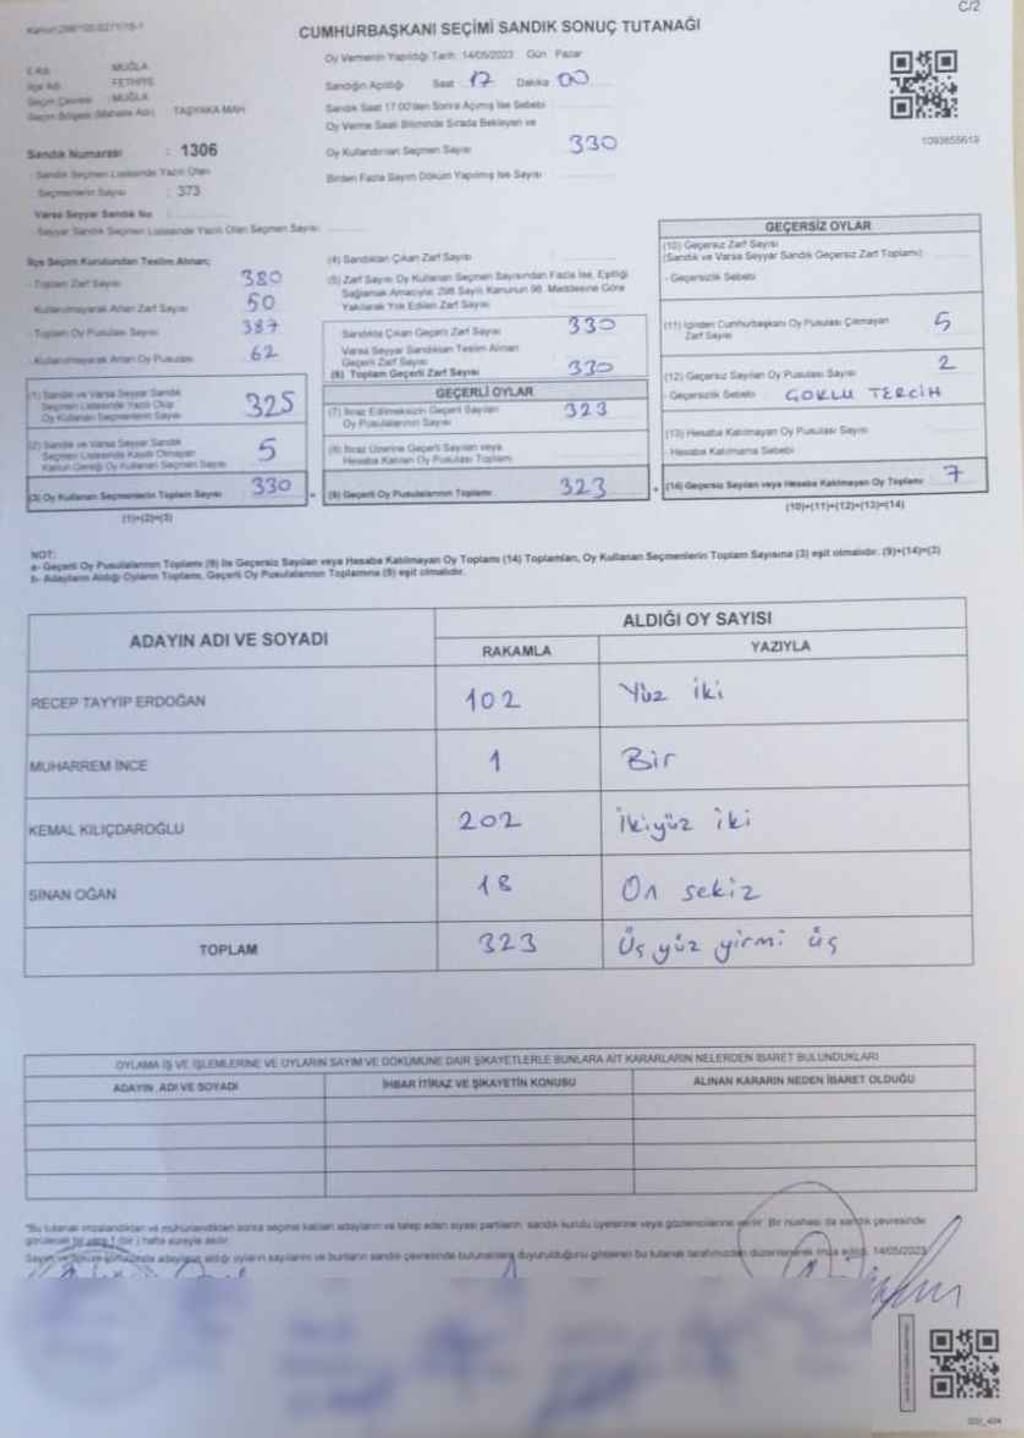 C/2
CUMHURBAŞKANI SEÇİMİ SANDIK SONUÇ TUTANAĞI
Oy Vermenin Yapıldığı Tarih: 14/05/2023 Gün: Pazar
İli Adı : MUĞLA
İlçe Adı : FETHİYE
Seçim Çevresi : MUĞLA
Seçim Bölgesi (Mahalle Adı) : TAŞYAKA MAH
Sandığın Açıldığı Saat : 17 Dakika : 00
Sandık Saat 17.00'den Sonra Açılmış İse Sebebi
Oy Verme Saati Bitiminde Sırada Bekleyen ve
Oy Kullandırılan Seçmen Sayısı 330
Birden Fazla Sayım Döküm Yapılmış İse Sayısı
1093655619
Sandık Numarası : 1306
Sandık Seçmen Listesinde Yazılı Olan
Seçmenlerin Sayısı : 373
Varsa Seyyar Sandık No
Seyyar Sandık Seçmen Listesinde Yazılı Olan Seçmen Sayısı:
İlçe Seçim Kurulundan Teslim Alınan;
- Toplam Zarf Sayısı 380
- Kullanılmayarak Artan Zarf Sayısı 50
- Toplam Oy Pusulası Sayısı 387
- Kullanılmayarak Artan Oy Pusulası 62
(1) Sandık ve Varsa Seyyar Sandık
Seçmen Listesinde Yazılı Olup
Oy Kullanan Seçmenlerin Sayısı 325
(2) Sandık ve Varsa Seyyar Sandık
Seçmen Listesinde Kayıtlı Olmayan
Kanun Gereği Oy Kullanan Seçmen Sayısı 5
(3) Oy Kullanan Seçmenlerin Toplam Sayısı 330
(1)+(2)=(3)
(4) Sandıktan Çıkan Zarf Sayısı
(5) Zarf Sayısı Oy Kullanan Seçmen Sayısından Fazla İse, Eşitliği
Sağlamak Amacıyla 298 Sayılı Kanunun 98. Maddesine Göre
Yakılarak Yok Edilen Zarf Sayısı
Sandıkta Çıkan Geçerli Zarf Sayısı 330
Varsa Seyyar Sandıktan Teslim Alınan
Geçerli Zarf Sayısı
(6) Toplam Geçerli Zarf Sayısı 330
GEÇERLİ OYLAR
(7) İtiraz Edilmeksizin Geçerli Sayılan
Oy Pusulalarının Sayısı 323
(8) İtiraz Üzerine Geçerli Sayılan veya
Hesaba Katılan Oy Pusulası Toplamı
(9) Geçerli Oy Pusulalarının Toplamı 323
GEÇERSİZ OYLAR
(10) Geçersiz Zarf Sayısı
(Sandık ve Varsa Seyyar Sandık Geçersiz Zarf Toplamı)
- Geçersizlik Sebebi
(11) İçinden Cumhurbaşkanı Oy Pusulası Çıkmayan
Zarf Sayısı 5
(12) Geçersiz Sayılan Oy Pusulası Sayısı 2
- Geçersizlik Sebebi ÇOKLU TERCİH
(13) Hesaba Katılmayan Oy Pusulası Sayısı
- Hesaba Katılmama Sebebi
(14) Geçersiz Sayılan veya Hesaba Katılmayan Oy Toplamı 7
(10)+(11)+(12)+(13)=(14)
NOT:
a- Geçerli Oy Pusulalarının Toplamı (9) ile Geçersiz Sayılan veya Hesaba Katılmayan Oy Toplamı (14) Toplamları, Oy Kullanan Seçmenlerin Toplam Sayısına (3) eşit olmalıdır. (9)+(14)=(3)
b- Adayların Aldığı Oyların Toplamı, Geçerli Oy Pusulalarının Toplamına (9) eşit olmalıdır.
ADAYIN ADI VE SOYADI ALDIĞI OY SAYISI
RAKAMLA YAZIYLA
RECEP TAYYİP ERDOĞAN 102 Yüz iki
MUHARREM İNCE 1 Bir
KEMAL KILIÇDAROĞLU 202 İkiyüz iki
SİNAN OĞAN 18 On sekiz
TOPLAM 323 Üç yüz yirmi üç
OYLAMA İŞ VE İŞLEMLERİNE VE OYLARIN SAYIM VE DÖKÜMÜNE DAİR ŞİKAYETLERLE BUNLARA AİT KARARLARIN NELERDEN İBARET BULUNDUKLARI
ADAYIN ADI VE SOYADI İHBAR İTİRAZ VE ŞİKAYETİN KONUSU ALINAN KARARIN NEDEN İBARET OLDUĞU
*Bu tutanak imzalandıktan ve mühürlendikten sonra seçime katılan adayların ve talep eden siyasi partilerin, sandık kurulu üyelerine veya gözlemcilerine verilir. Bir nüshası da sandık çevresinde
görülecek bir yere 1 (bir) hafta süreyle asılır.
adayların aldığı oyların sayılarını ve bunların sandık çevresinde bulunanlara duyurulduğunu gösteren bu tutanak tarafımızdan düzenlenerek imza edildi. 14/05/2023